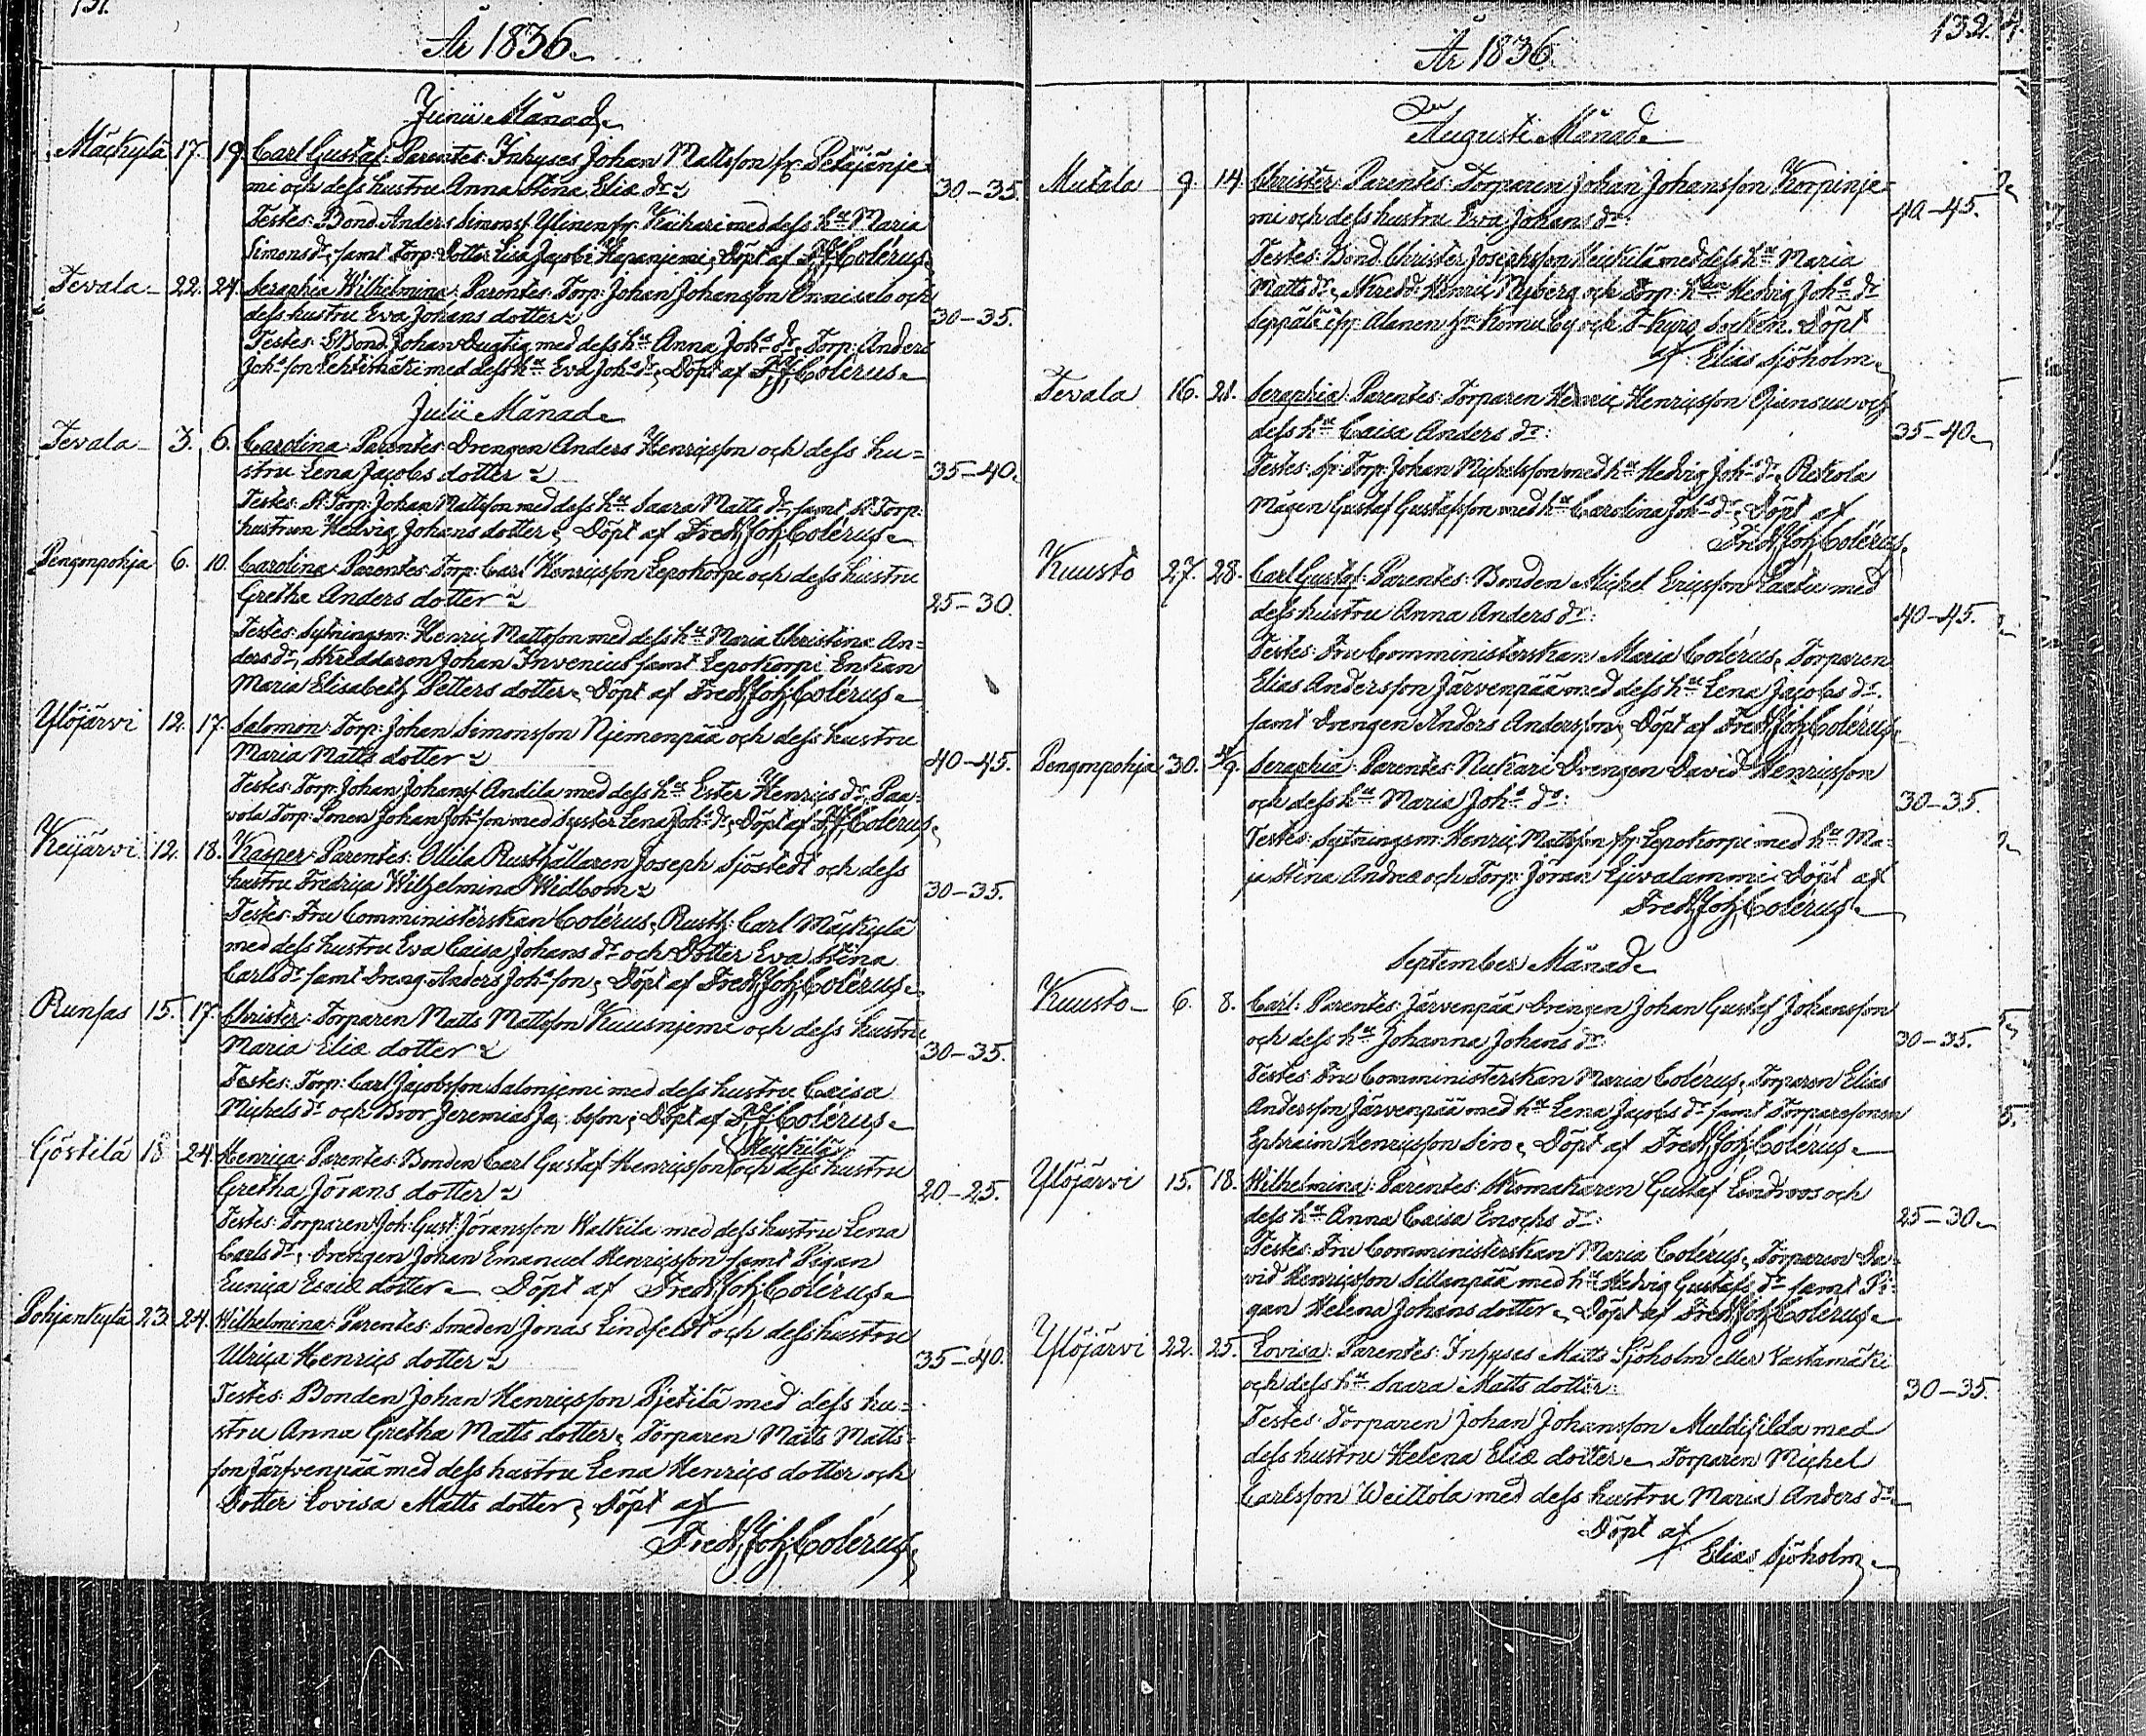 131.
År 1836.
Junii Månad.
Mäckylä 17. 19. Carl Gustaf: Parentes: Inhyses Johan Mattsson fr. Petäjänje-
mi och dess hustru Anna Stina Eliæ dr. 30–35.
Testes: Bond. Anders Simonss. Ylinen fr. Kaihari med dess h:u Maria
Simons dr. samt Torp: Dotter Lisa Jacobs Hepanjemi. Döpt af F. J. Colérus.
Tevala 22. 24. Seraphia Wilhelmina: Parentes: Torp: Johan Johansson Onnisalo och
dess hustru Eva Johans dotter 30–35.
Testes: Bond. Johan Dugtig med dess h:u Anna Joh:s dr. Torp: Anders
Joh:sson Lehtimäki med dess h:u Eva Joh:s dr. Döpt af F. J. Colérus.
Julii Månad.
Tevala 3. 6. Carolina: Parentes: Drengen Anders Henricsson och dess hu-
stru Lena Jacobs dotter 35–40.
Testes: St. Torp: Johan Mattsson med dess h:u Saara Matts dr. samt St. Torp:
hustrun Hedvig Johans dotter. Döpt af Fredr. Joh. Colérus.
Pengonpohja 6. 10. Carolina: Parentes: Torp: Carl Henricsson Lepokorpi och dess hustru
Gretha Anders dotter 25–30.
Testes: Sytningsm: Henric Mattsson med dess h:u Maria Christina An-
ders dr. Skreddaren Johan Invenius samt Lepokorpi Enkan
Maria Elisabeth Petters dotter. Döpt af Fredr. Joh. Colérus.
Ylöjärvi 12. 17. Salomon: Torp: Johan Simonsson Njemenpää och dess hustru
Maria Matts dotter 40–45.
Testes: Torp: Johan Johanss. Andila med dess h:u Ester Henrics dr. Paa-
vola Torp: Sonen Johan Joh:sson med Syster Lena Joh:s dr. Döpt af F. J. Colérus.
Keijärvi 12. 18. Kasper: Parentes: Ollila Rusthållaren Joseph Sjöstedt och dess
hustru Fredrica Wilhelmina Widbom 30–35.
Testes: Fru Comministerskan Colérus, Rusth: Carl Mäckylä
med dess hustru Eva Caisa Johans dr. och Dotter Eva Stina
Carls dr. samt Dreng. Anders Joh:sson. Döpt af Fredr. Joh. Colérus.
Runsas 15. 17. Christer: Torparen Matts Mattsson Kuusnjemi och dess hustru
Maria Eliæ dotter 30–35.
Testes: Torp: Carl Jacobsson Salonjemi med dess hustru Caisa
Michels dr. och Bror Jeremias Ja bsson. Döpt af F. J. Colérus.
Heickilä
Göstilä 18. 24. Henrica: Parentes: Bonden Carl Gustaf Henricsson och dess hustru
Gretha Jörans dotter 20–25.
Testes: Torparen Joh: Gust: Jöransson Walkila med dess hustru Lena
Carls dr. Drengen Johan Emanuel Henricsson samt Pigan
Eunica Esaiæ dotter. Döpt af Fredr. Joh. Colérus.
Pohjankylä 23. 24. Wilhelmina: Parentes: Smeden Jonas Lindfelst och dess hustru
Ulrica Henrics dotter 35–40.
Testes: Bonden Johan Henricsson Pjetilä med dess hu-
stru Anna Gretha Matts dotter. Torparen Matts Matts-
son Järfvenpää med dess hustru Lena Henrics dotter och
Dotter Lovisa Matts dotter. Döpt af
Fredr. Joh. Colérus.
132.
År 1836.
Augusti Månad.
Mutala 9. 14. Christer: Parentes: Torparen Johan Johansson Korpinje-
mi och dess hustru Eva Johans dr. 40–45.
Testes: Bond. Christer Josephsson Heickilä med dess h:u Maria
Matts dr. Skredd. Henric Nyberg och Torp: h:un Hedvig Joh:s dr.
Seppälä Alanen fr. Komu by och T-Kyro Socken. Döpt
af Elias Sjöholm.
Tevala 16. 28. Seraphia: Parentes: Torparen Henric Henricsson Ojansuu och
dess h:u Caisa Anders dr. 35–40.
Testes: Torp: Johan Michelsson med h:u Hedvig Joh:s dr. Retkola
Mågen Gustaf Gustafsson med h:u Carolina Joh:s dr. Döpt af
Fredr. Joh. Colérus.
Kuusto 27. 28. Carl Gustaf: Parentes: Bonden Michel Ericsson Laatu med
dess hustru Anna Anders dr. 40–45.
Testes: Fru Comministerskan Maria Colérus, Torparen
Elias Andersson Järvenpää med dess h:u Lena Jacobs dr.
samt Drengen Anders Andersson. Döpt af Fredr. Joh. Colérus.
Pengonpohja 30. Seraphia: Parentes: Nukari Drengen David Henricsson
och dess h:u Maria Joh:s dr. 30–35.
Testes: Sytningsm: Henric Mattsson fr. Lepokorpi med h:u Ma-
ja Stina Andræ och Torp: Jöran Ejvalammi. Döpt af
Fredr. Joh. Colérus.
September Månad.
Kuusto 6. 8. Carl: Parentes: Järvenpää Drengen Johan Gustaf Johansson
och dess h:u Johanna Johans dr. 30–35.
Testes: Fru Comministerskan Maria Colérus, Torparen Elias
Andersson Järvenpää med h:u Lena Jacobs dr. samt Torparesonen
Ephraim Henricsson Siro. Döpt af Fredr. Joh. Colérus.
Ylöjärvi 15. 18. Wilhelmina: Parentes: Skomakaren Gustaf Lindroos och
dess h:u Anna Caisa Enochs dr. 25–30.
Testes: Fru Comministerskan Maria Colérus, Torparen Da-
vid Henricsson Sillanpää med h:u Hedvig Gustafs dr. samt Pi-
gan Helena Johans dotter. Döpt af Fredr. Joh. Colérus.
Ylöjärvi 22. 25. Lovisa: Parentes: Inhyses Matts Sjöholm eller Vastamäki
och dess h:u Saara Matts dotter 30–35.
Testes: Torparen Johan Johansson Muldifilda med
dess hustru Helena Eliæ dotter. Torparen Michel
Carlsson Weittola med dess hustru Maria Anders dr.
Döpt af
Elias Sjöholm.